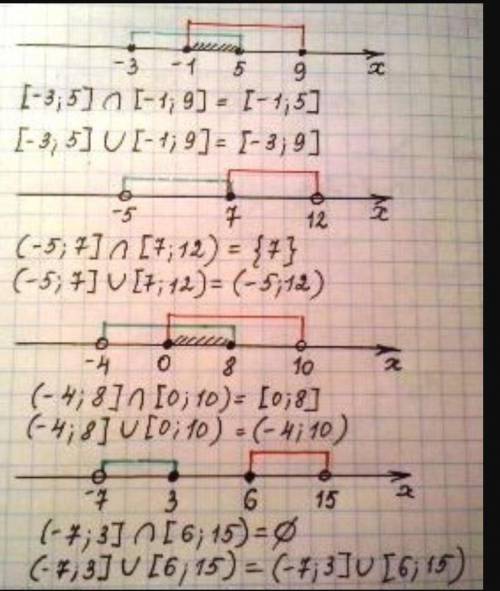 -3 -1 5 9 x
[-3;5] ∩ [-1;9] = [-1;5]
[-3;5] ∪ [-1;9] = [-3;9]
-5 7 12 x
(-5;7] ∩ [7;12) = {7}
(-5;7] ∪ [7;12) = (-5;12)
-4 0 8 10 x
(-4;8] ∩ [0;10) = [0;8]
(-4;8] ∪ [0;10) = (-4;10)
-7 3 6 15 x
(-7;3] ∩ [6;15) = ∅
(-7;3] ∪ [6;15) = (-7;3] ∪ [6;15)